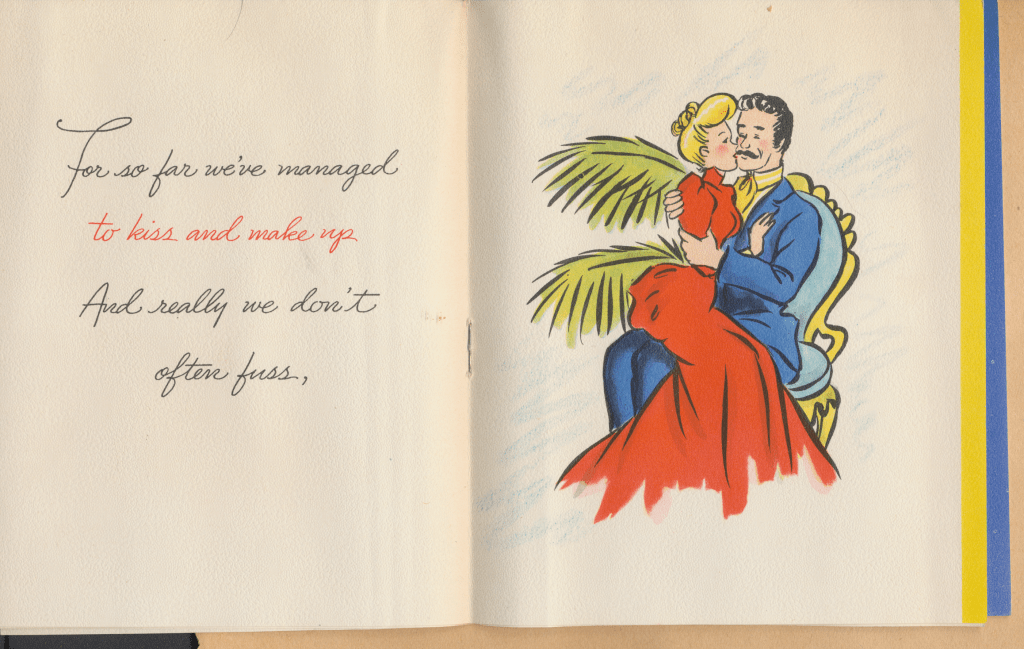 For so far we've managed
to kiss and make up
And really we don't
often fuss,